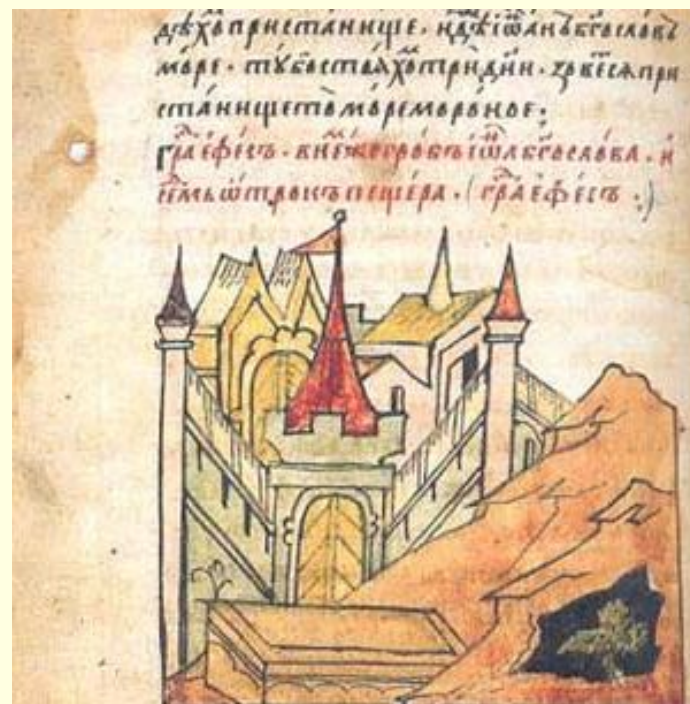 дѣ́хо пристанище. идѣ́ же іѡ́анъ бг҃ословъ
мо́ре. ту бо стоя́хом три́ дни́. зове́ся при
ста́нище то мо́ре мо́рѡное.
гра́ ефе́съ. в не́м же гро́бъ іѡ́а бг҃осло́ва. и
се́мь ѿтрокъ пеще́ра. (гра́ ефе́съ.)